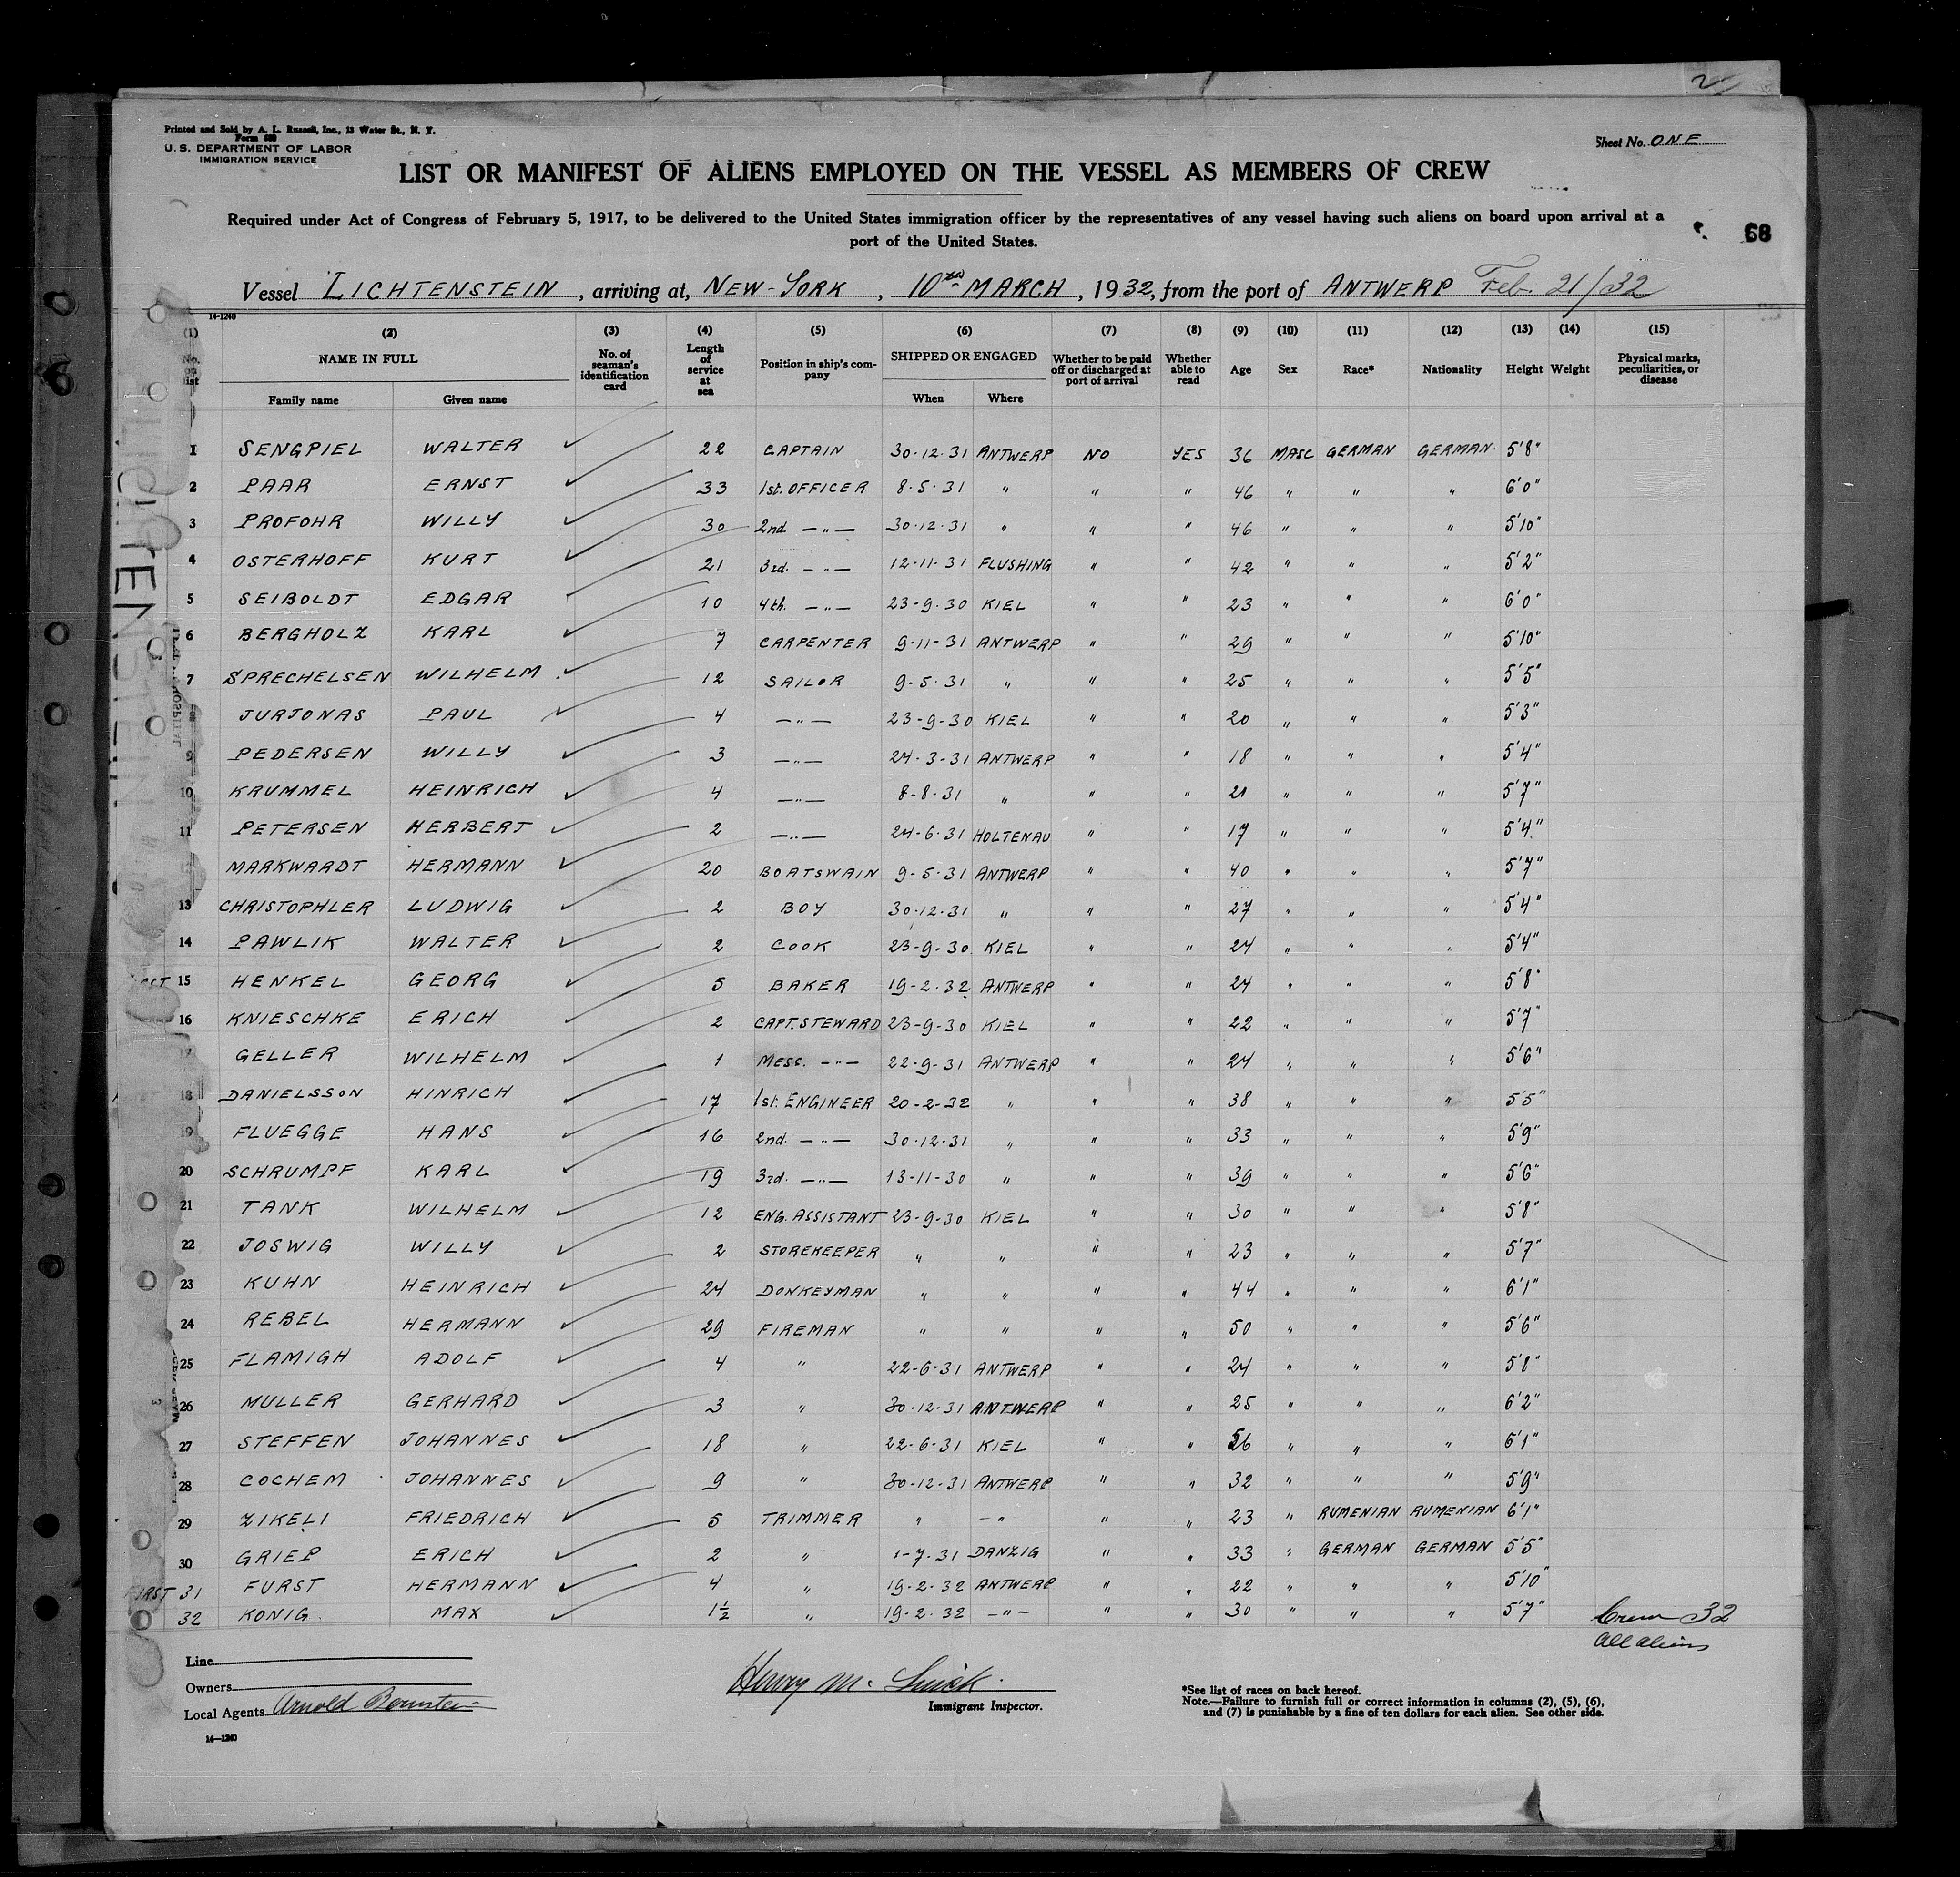 2
Printed and Sold by A. L. Russell, Inc., 13 Water St., N. Y.
Form 680
U. S. DEPARTMENT OF LABOR
IMMIGRATION SERVICE
Sheet No. ONE
LIST OR MANIFEST OF ALIENS EMPLOYED ON THE VESSEL AS MEMBERS OF CREW
Required under Act of Congress of February 5, 1917, to be delivered to the United States immigration officer by the representatives of any vessel having such aliens on board upon arrival at a
port of the United States.
68
Vessel LICHTENSTEIN, arriving at, NEW-YORK, 10th MARCH, 1932, from the port of ANTWERP Feb. 21/32
14-1240
(1) (2) (3) (4) (5) (6) (7) (8) (9) (10) (11) (12) (13) (14) (15)
No. on list NAME IN FULL Family name Given name No. of seaman's identification card Length of service at sea Position in ship's company SHIPPED OR ENGAGED When Where Whether to be paid off or discharged at port of arrival Whether able to read Age Sex Race* Nationality Height Weight Physical marks, peculiarities, or disease
1 SENGPIEL WALTER 22 CAPTAIN 30.12.31 ANTWERP NO YES 36 MASC GERMAN GERMAN 5'8"
2 PAAR ERNST 33 1st. OFFICER 8.5.31 " " " 46 " " " 6'0"
3 PROFOHR WILLY 30 2nd —"— 30.12.31 " " " 46 " " " 5'10"
4 OSTERHOFF KURT 21 3rd. —"— 12.11.31 FLUSHING " " 42 " " " 5'2"
5 SEIBOLDT EDGAR 10 4th. —"— 23-9.30 KIEL " " 23 " " " 6'0"
6 BERGHOLZ KARL 7 CARPENTER 9-11-31 ANTWERP " " 29 " " " 5'10"
7 SPRECHELSEN WILHELM 12 SAILOR 9-5.31 " " " 25 " " " 5'5"
JURJONAS PAUL 4 —"— 23-9-30 KIEL " " 20 " " " 5'3"
9 PEDERSEN WILLY 3 —"— 24.3-31 ANTWERP " " 18 " " " 5'4"
10 KRUMMEL HEINRICH 4 —"— 8-8.31 " " " 21 " " " 5'7"
11 PETERSEN HERBERT 2 —"— 24-6.31 HOLTENAU " " 17 " " " 5'4"
MARKWARDT HERMANN 20 BOATSWAIN 9-5.31 ANTWERP " " 40 " " " 5'7"
13 CHRISTOPHLER LUDWIG 2 BOY 30.12.31 " " " 27 " " " 5'4"
14 PAWLIK WALTER 2 COOK 23-9-30 KIEL " " 24 " " " 5'4"
15 HENKEL GEORG 5 BAKER 19-2.32 ANTWERP " " 24 " " " 5'8"
16 KNIESCHKE ERICH 2 CAPT. STEWARD 23-9-30 KIEL " " 22 " " " 5'7"
17 GELLER WILHELM 1 MESS. —"— 22-9-31 ANTWERP " " 24 " " " 5'6"
18 DANIELSSON HINRICH 17 1st. ENGINEER 20-2-32 " " " 38 " " " 5'5"
19 FLUEGGE HANS 16 2nd. —"— 30.12.31 " " " 33 " " " 5'9"
20 SCHRUMPF KARL 19 3rd. —"— 13-11-30 " " " 39 " " " 5'6"
21 TANK WILHELM 12 ENG. ASSISTANT 23-9-30 KIEL " " 30 " " " 5'8"
22 JOSWIG WILLY 2 STOREKEEPER " " " " 23 " " " 5'7"
23 KUHN HEINRICH 24 DONKEYMAN " " " " 44 " " " 6'1"
24 REBEL HERMANN 29 FIREMAN " " " " 50 " " " 5'6"
25 FLAMIGH ADOLF 4 " 22-6-31 ANTWERP " " 24 " " " 5'8"
26 MULLER GERHARD 3 " 30-12-31 ANTWERP " " 25 " " " 6'2"
27 STEFFEN JOHANNES 18 " 22-6-31 KIEL " " " " " 6'1"
28 COCHEM JOHANNES 9 " 30-12-31 ANTWERP " " 32 " " " 5'9"
29 ZIKELI FRIEDRICH 5 TRIMMER " —" " " 23 " RUMENIAN RUMENIAN 6'1"
30 GRIEP ERICH 2 " 1-7.31 DANZIG " " 33 " GERMAN GERMAN 5'5"
FIRST 31 FURST HERMANN 4 " 19-2.32 ANTWERP " " 22 " " " 5'10"
32 KONIG MAX 1½ " 19-2.32 —"— " " 30 " " " 5'7"
Crew 32
all aliens
Line
Owners
Local Agents Arnold Bernstein
Henry M.
Immigrant Inspector.
*See list of races on back hereof.
Note.—Failure to furnish full or correct information in columns (2), (5), (6),
and (7) is punishable by a fine of ten dollars for each alien. See other side.
14—1240
LICHTENSTEIN